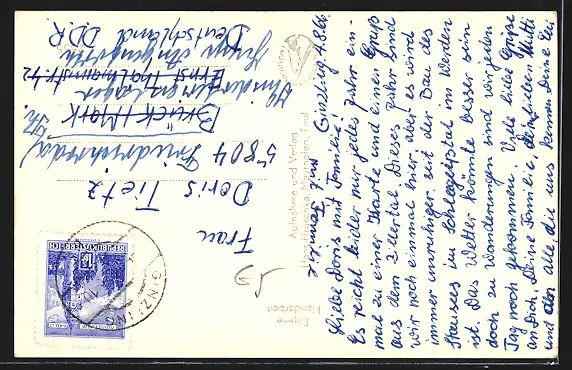 Ginzling, 4.8.66
Liebe Doris mit Familie!
Es reicht leider nur jedes Jahr ein-
mal zu einer Karte und einen Gruß
aus dem Zillertal. Dieses Jahr sind
wir noch einmal hier, aber es wird
immer unruhiger seit der Bau des
Stausees im Schlegeistal im Werden
ist. Das Wetter könnte besser sein
doch zu Wanderungen sind wir jeden
Tag noch gekommen. Viele liebe Grüße
an Dich, Deine Familie, lieben Mutti
und an alle, die uns kennen Deine
und Familie
Eigene
Handarbeit
Aufnahme und Verlag
Mayrhofen Tirol
REPUBLIK ÖSTERREICH
GINZLING
Frau
Doris Tietz
5804 Friedrichroda/Th.
Brück/Mark
Kinderferienlager
Ernst-Thälmannstr. 42
Deutschland DDR